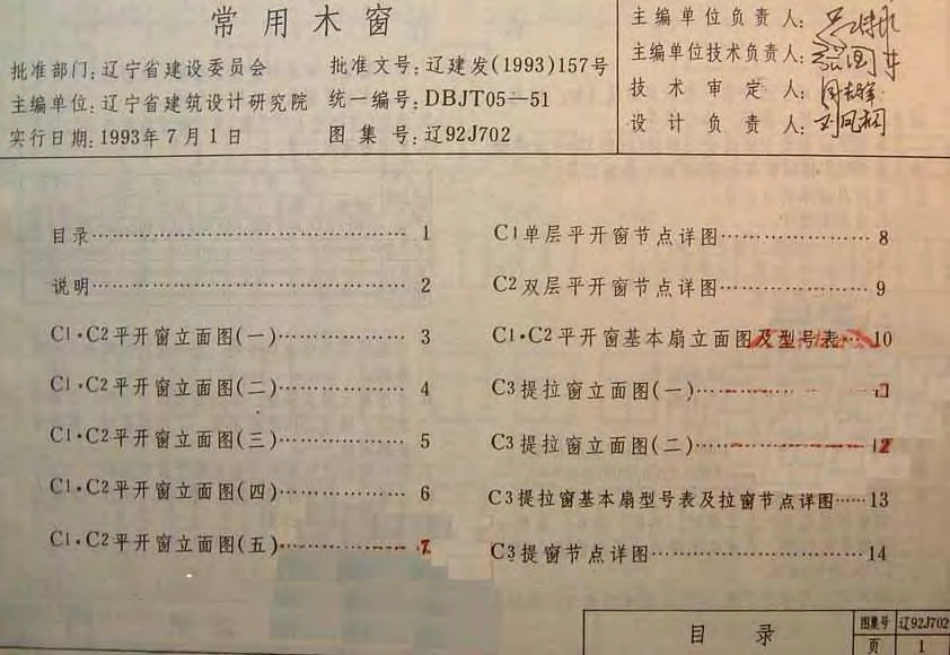 常用木窗
批准部门:辽宁省建设委员会 批准文号:辽建发(1993)157号
主编单位:辽宁省建筑设计研究院 统一编号:DBJT05—51
实行日期:1993年7月1日 图集号:辽92J702
主编单位负责人:
主编单位技术负责人:
技术审定人:
设计负责人:
目录 1
说明 2
C1·C2平开窗立面图(一) 3
C1·C2平开窗立面图(二) 4
C1·C2平开窗立面图(三) 5
C1·C2平开窗立面图(四) 6
C1·C2平开窗立面图(五) 7
C1单层平开窗节点详图 8
C2双层平开窗节点详图 9
C1·C2平开窗基本扇立面图及型号表 10
C3提拉窗立面图(一)
C3提拉窗立面图(二) 12
C3提拉窗基本扇型号表及拉窗节点详图 13
C3提窗节点详图 14
目录
图集号 辽92J702
页 1